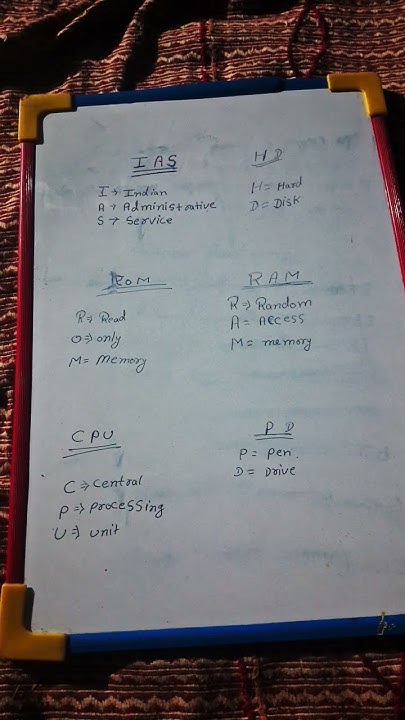 IAS
I → Indian
A → Administrative
S → Service
HD
H = Hard
D = Disk
ROM
R ⇒ Read
O ⇒ only
M = Memory
RAM
R ⇒ Random
A = Access
M = memory
CPU
C ⇒ Central
P ⇒ processing
U ⇒ unit
PD
P = Pen.
D = Drive